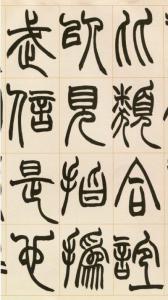 比類合誼
以見指撝
武信是也